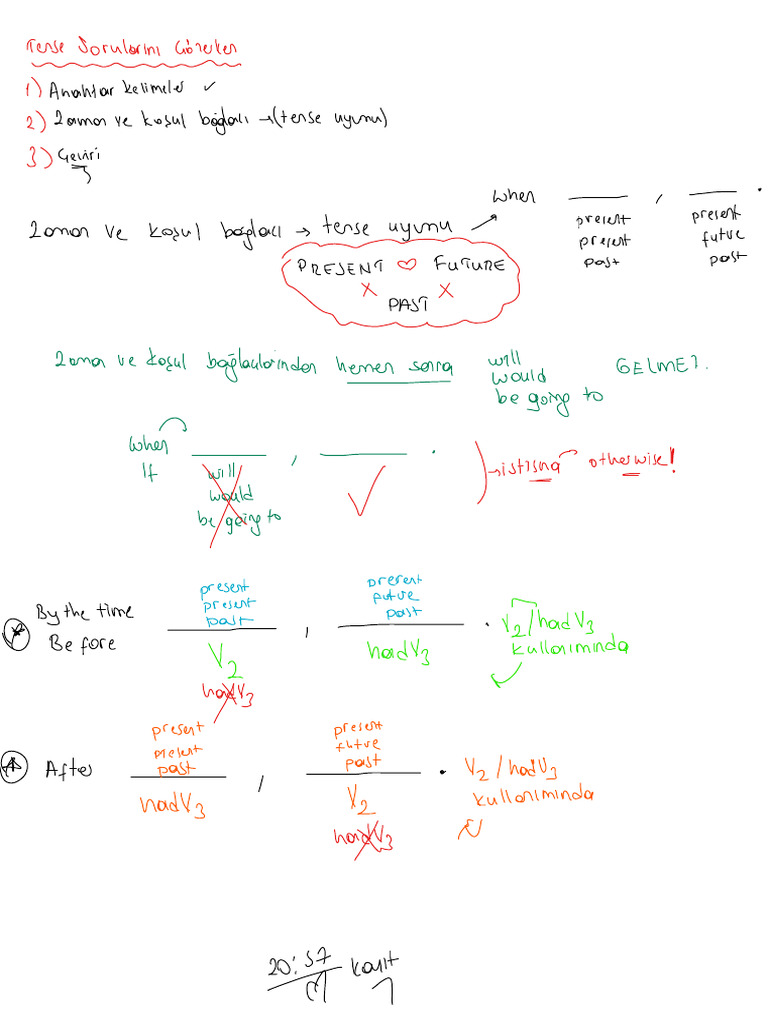 Tense Sorularını Çözerken
1) Anahtar kelimeler ✓
2) Zaman ve koşul bağlacı → (tense uyumu)
3) Çeviri
Zaman ve koşul bağlacı → tense uyumu
when ____ , ____ .
present present
present future
past past
PRESENT ♡ FUTURE
X X
PAST
Zaman ve koşul bağlaçlarından hemen sonra will GELMEZ.
would
be going to
when ____ , ____ .
If
will
would
be going to
✓
→ istisna otherwise!
present present
present future
past past
By the time
Before
____ , ____ .
V2 had V3
had V3
V2/had V3
kullanımında
present present
present future
past past
After ____ , ____ .
had V3 V2
had V3
V2/had V3
kullanımında
20:57 kayıt